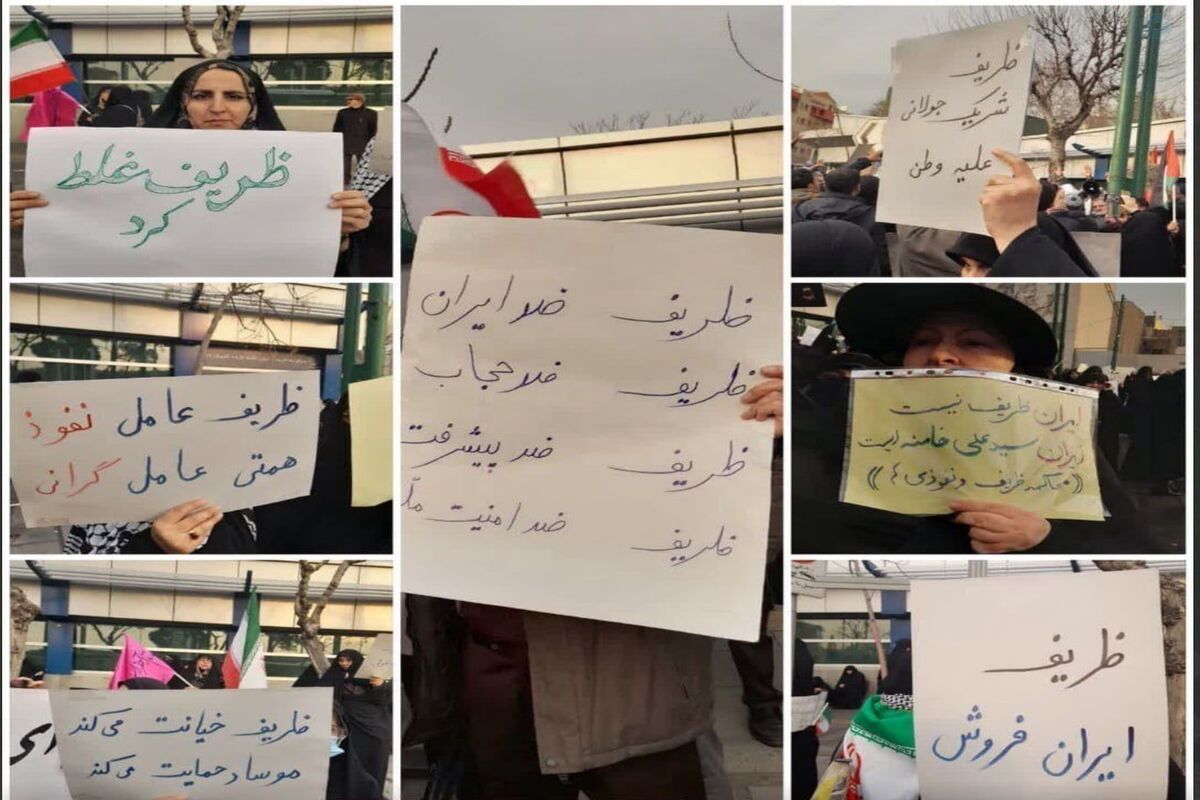 ظریف غلط
کرد
ظریف عامل نفوذ
همتی عامل گرانی
ظریف خیانت می‌کند
موساد حمایت می‌کند
ظریف ضد ایران
ظریف ضد حجاب
ظریف ضد پیشرفت
ظریف ضد امنیت
ظریف
شریک جولانی
علیه وطن
ایران ظریف نیست
ایران سید علی خامنه ایست
((محاکمه ظریف و نفوذی))
ظریف
ایران فروش